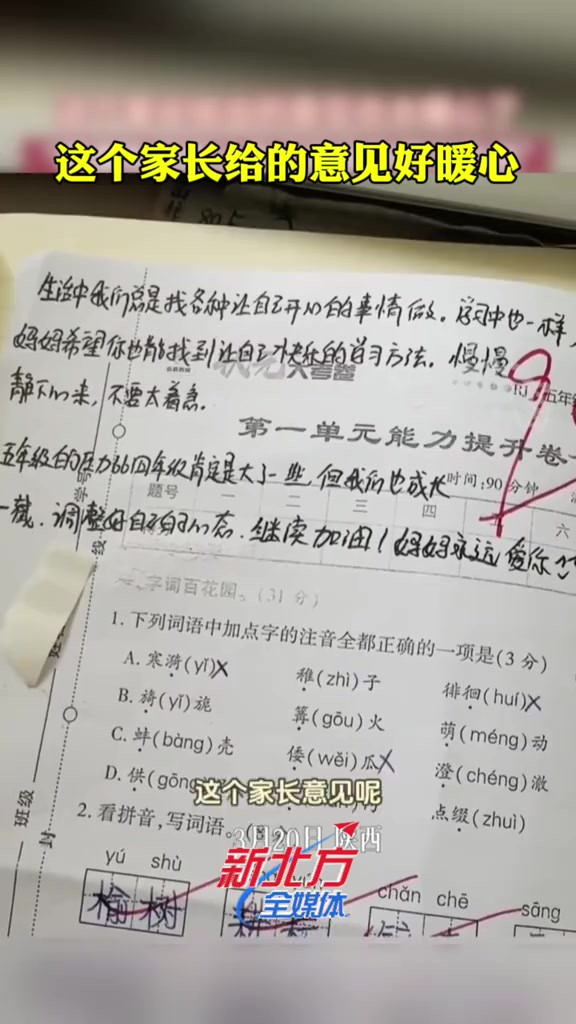 这个家长给的意见好暖心
生活中我们总是找各种让自己开心的事情做。学习中也一样，
妈妈希望你也能找到让自己快乐的学习方法。慢慢
静下心来，不要太着急。
大考卷
RJ 五年级
第一单元能力提升卷
五年级的压力比四年级肯定是大了一些，但我们也成长
时间:90分钟
题号 一 二 三 四 五 六
一截．调整好自己的心态．继续加油！妈妈永远爱你
字词百花园。(31分)
1.下列词语中加点字的注音全都正确的一项是(3分)
A.寒漪(yī)X 稚(zhì)子 徘徊(huí)X
B.旖(yǐ)旎 篝(gōu)火 萌(méng)动
C.蚌(bàng)壳 倭(wěi)瓜X 澄(chéng)澈
D.供(gōng 点缀(zhuì)
这个家长意见呢
2.看拼音,写词语。
3月20日 陕西
班级
封
线
学号
yú shù
chǎn chē
sāng
榆树
新北方
全媒体